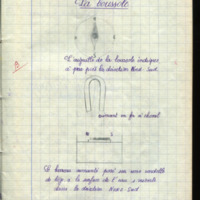 La boussole
L'aiguille de la boussole indique
à peu près la direction Nord-Sud
aimant en fer à cheval
Le barreau aimanté posé sur une rondelle
de liège à la surface de l'eau s'oriente
dans la direction Nord-Sud